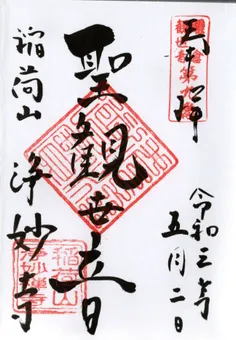 奉拝
聖観世音
稲荷山 浄妙寺
令和三年
五月二日
稲荷山